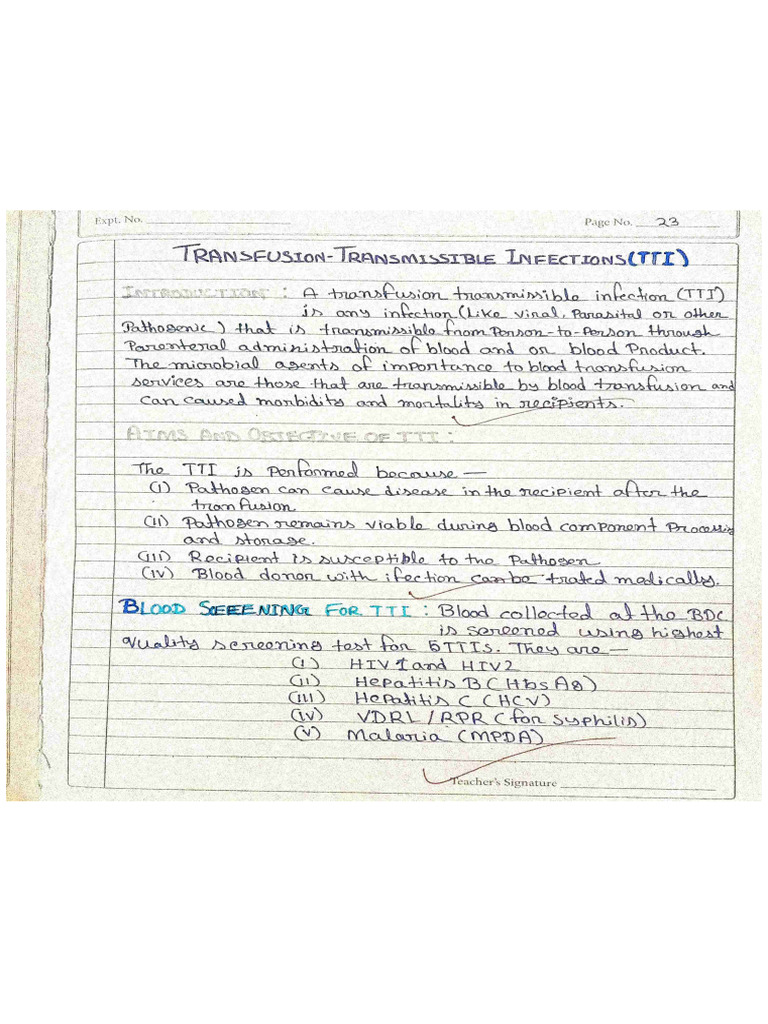 Expt. No.
Page No. 23
TRANSFUSION-TRANSMISSIBLE INFECTIONS(TTI)
INTRODUCTION : A transfusion transmissible infection (TTI)
is any infection (Like viral, Parasital or other
Pathogenic) that is transmissible from Person-to-Person through
Parenteral administration of blood and or blood Product.
The microbial agents of importance to blood transfusion
services are those that are transmissible by blood transfusion and
can caused morbidity and mortality in recipients.
AIMS AND OBJECTIVE OF TTI :
The TTI is performed because —
(i) Pathogen can cause disease in the recipient after the
tranfusion
(ii) Pathogen remains viable during blood component Processing
and storage.
(iii) Recipient is susceptible to the Pathogen
(iv) Blood donor with ifection can be trated medically.
BLOOD SCREENING FOR TTI : Blood collected at the BDC
is screened using highest
quality screening test for 5TTIs. They are —
(i) HIV1 and HIV2
(ii) Hepatitis B (HbsAg)
(iii) Hepatitis C (HCV)
(iv) VDRL/RPR (for syphilis)
(v) Malaria (MPDA)
Teacher's Signature